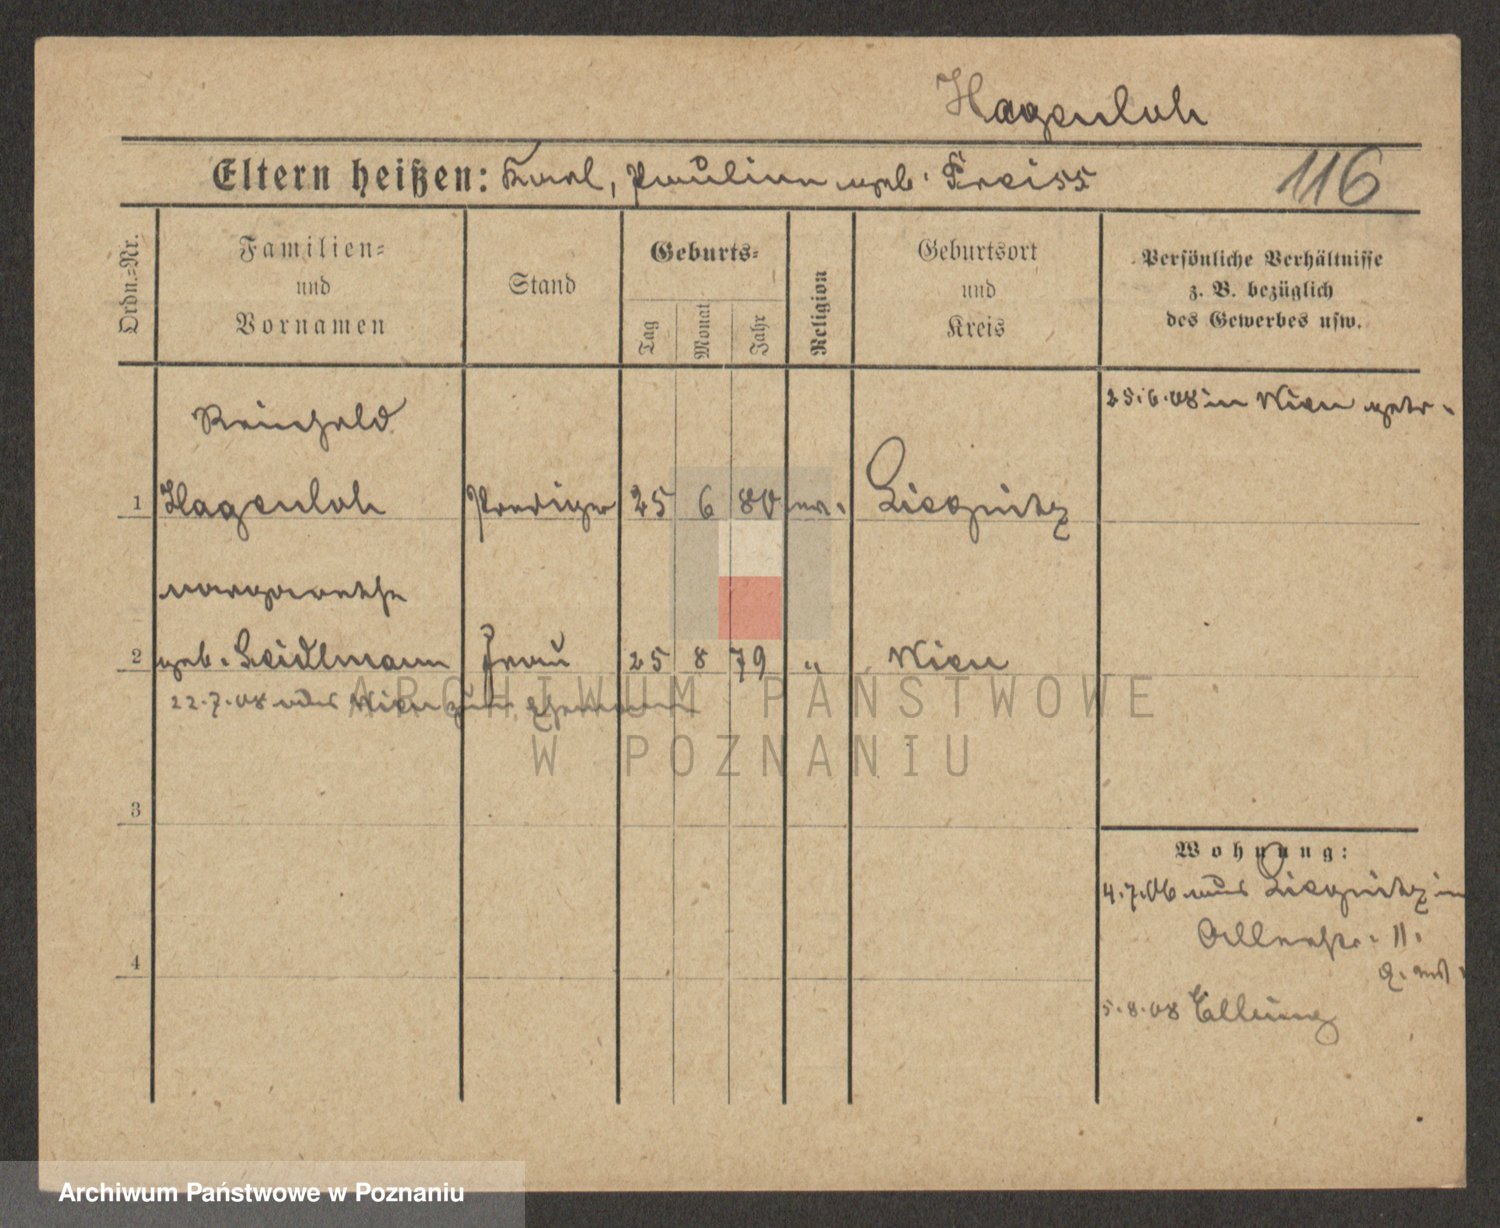 Hagenloh
Eltern heißen: Karl, Pauline geb. Preiss
116
Ordn.-Nr.
Familien-
und
Vornamen
Stand
Geburts-
Tag
Monat
Jahr
Religion
Geburtsort
und
Kreis
Persönliche Verhältnisse
z. B. bezüglich
des Gewerbes usw.
25.6.08 in Wien getr.
Reinhold
1 Hagenloh Prediger 25 6 80 ev. Liegnitz
Margarethe
2 geb. Seidlmann Frau 25 8 79 " Wien
22.7.08 aus Wien zum Ehemann
3
4
Wohnung:
4.7.06 aus Liegnitz in
11.
5.8.08 Elbing
ARCHIWUM PAŃSTWOWE
W POZNANIU
Archiwum Państwowe w Poznaniu